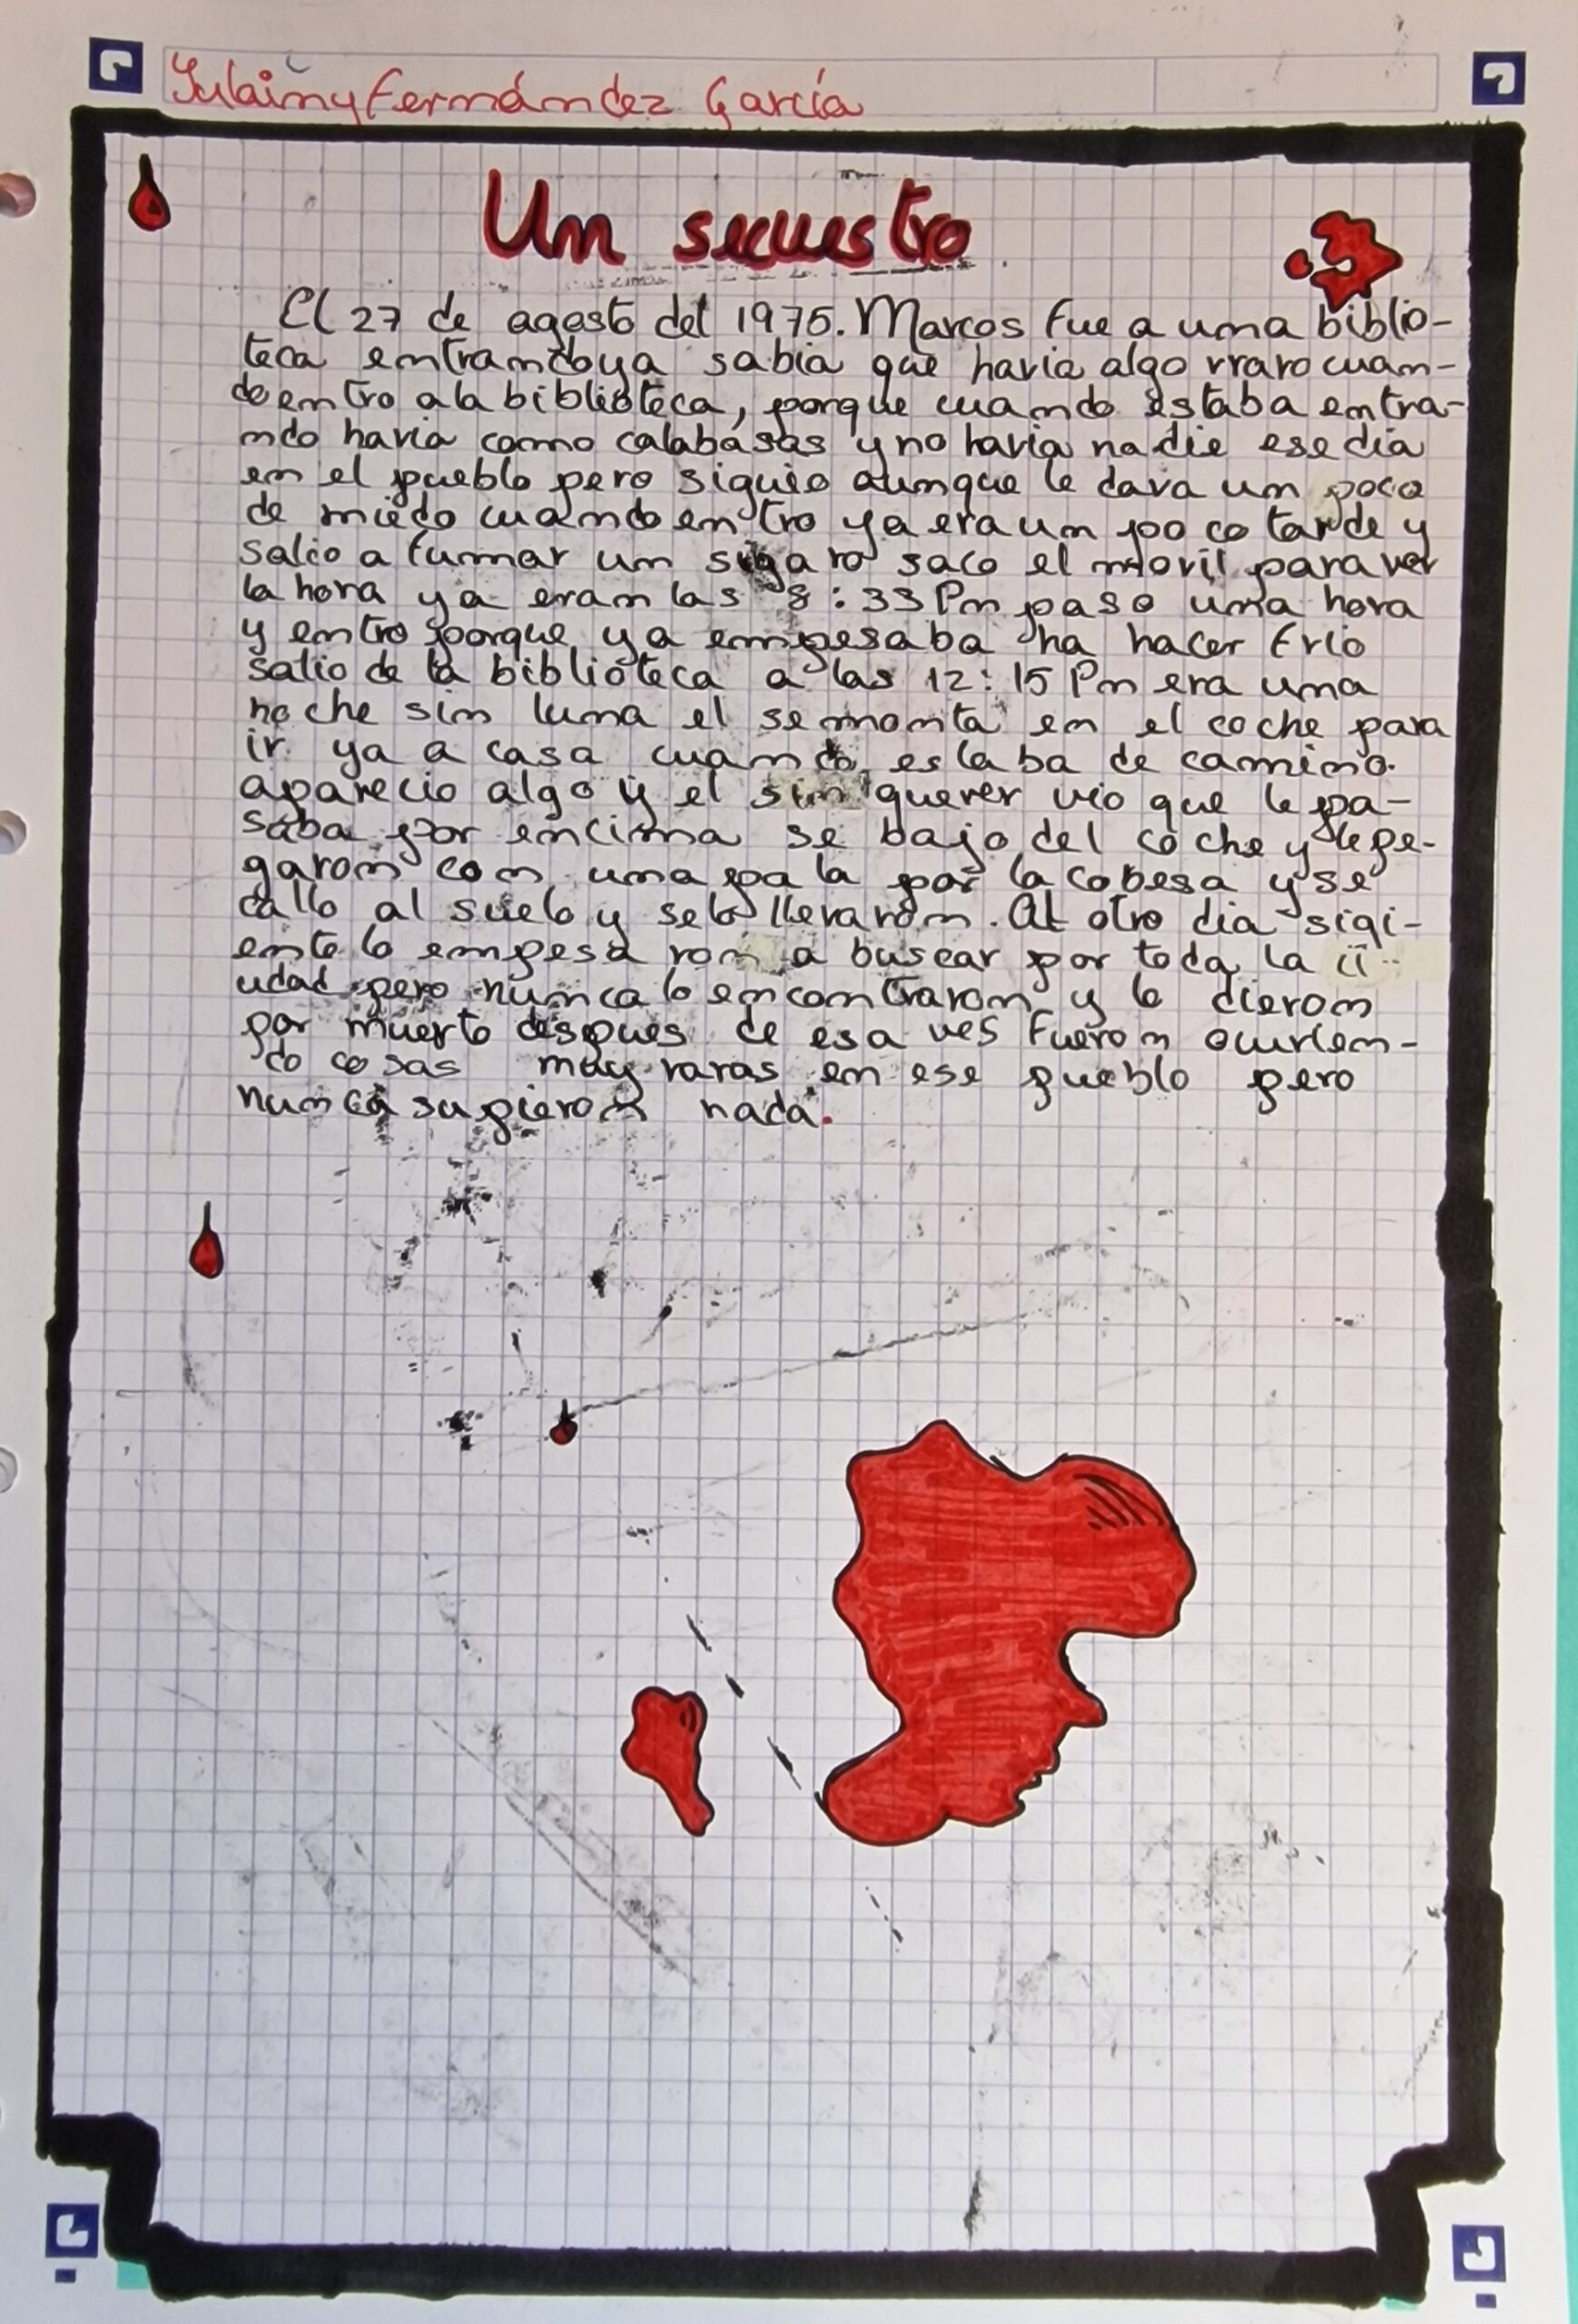 Yulainy Fernández García
Un secuestro
El 27 de agosto del 1975. Marcos fue a una biblio-
teca entrando ya sabia que havia algo rraro cuan-
do entro a la biblioteca, porque cuando estaba entra-
ndo havia como calabasas y no havia nadie ese dia
en el pueblo pero siguio aunque le dava un poco
de miedo cuando entro ya era un poco tarde y
salio a fumar un sigaro saco el movil para ver
la hora ya eran las 8:33 Pm paso una hora
y entro porque ya empesaba ha hacer frio
salio de la biblioteca a las 12:15 Pm era una
noche sin luna el se monta en el coche para
ir ya a casa cuando estaba de camino
aparecio algo y el sin querer vio que le pa-
saba por encima se bajo del coche y le pe-
garon con una pala por la cabesa y se
callo al suelo y se lo llevaron. Al otro dia sigi-
ente lo empesaron a buscar por toda la ci
udad pero nunca lo encontraron y lo dieron
por muerto despues de esa ves fueron ocurien-
do cosas muy raras en ese pueblo pero
nunca supieron nada.